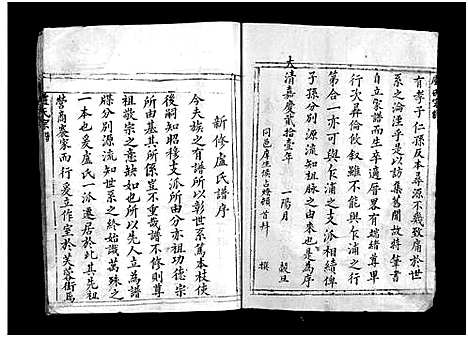 有孝子仁孫反本尋源不幾致痛於世
系之淪湮乎是以訪集舊聞故將筆書
自立家譜而生卒遷厝畧有端緒尊卑
行次昇倫攸叙雖不能與乍浦之行
第合一亦可與乍浦之支派相續俾
子孫分別源流知祖脉之由是為序
大清嘉慶貳拾壹年 一陽月 穀旦
同邑庠生侯占鰲頓首拜 撰
新修盧氏譜序
今夫族之有譜所以彰世系篤本枝俠
後嗣知昭穆支派所由分亦祖功德宗
所由基其所係豈不重哉譜不修則尊
祖敬宗之意缺如也所以先人立為譜
別分源流知世系之終始識萬殊之
一本也爰盧氏一派遷居於此其先祖
營商裘家而行爰立作室於芙蓉街焉
盧氏宗譜